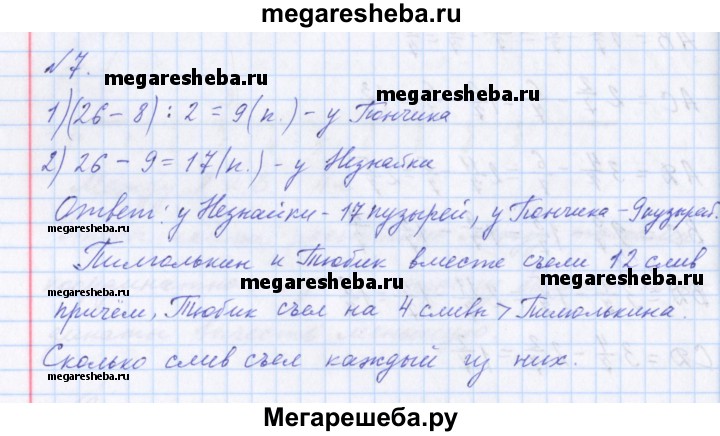 megaresheba.ru
№7.
megaresheba.ru
megaresheba.ru
1) (26 - 8) : 2 = 9 (п.) - у Пончика
2) 26 - 9 = 17 (п.) - у Незнайки
Ответ: у Незнайки - 17 пузырей, у Пончика - 9 пузырей.
megaresheba.ru
Пилюлькин и Тюбик вместе съели 12 слив
megaresheba.ru
megaresheba.ru
причём, Тюбик съел на 4 сливы > Пилюлькина.
Сколько слив съел каждый из них.
megaresheba.ru
megaresheba.ru
Мегарешеба.ру